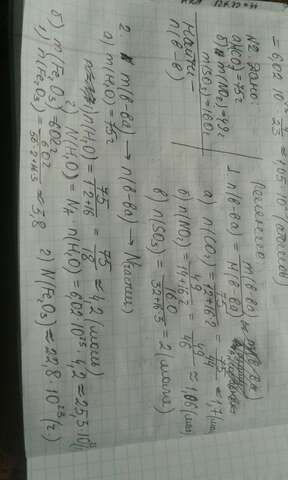 = 6,02 · 10²³ = 1,05 · 10 (атомов)
№2 Дано:
a) m(CO₂) = 75 г
б) m(NO₂) = 49 г
в) m(SO₃) = 160 г
Найти –
n(в-ва)
Решение
1. n(в-ва) = m(в-ва)
a) n(CO₂) = 75 / 12+16·2 = 75 / 44 ≈ 1,7 (моль)
б) n(NO₂) = 49 / 14+16·2 = 49 / 46 ≈ 1,06 (моль)
в) n(SO₃) = 160 / 32+16·3 = 2 (моль)
2. m(в-ва) → n(в-ва) → N(
a) m(H₂O) = 75 г
n(H₂O) = 75 / 1·2+16 = 75 / 18 ≈ 4,2 (моль)
2) N(H₂O) = Nₐ · n(H₂O) = 6,02 · 10²³ · 4,2 ≈ 25,3 · 10²³
б) m(Fe₂O₃) = 602
1) n(Fe₂O₃) = 602 / 56·2+16·3 ≈ 3,8
2) N(Fe₂O₃) ≈ 22,8 · 10²³ (г)